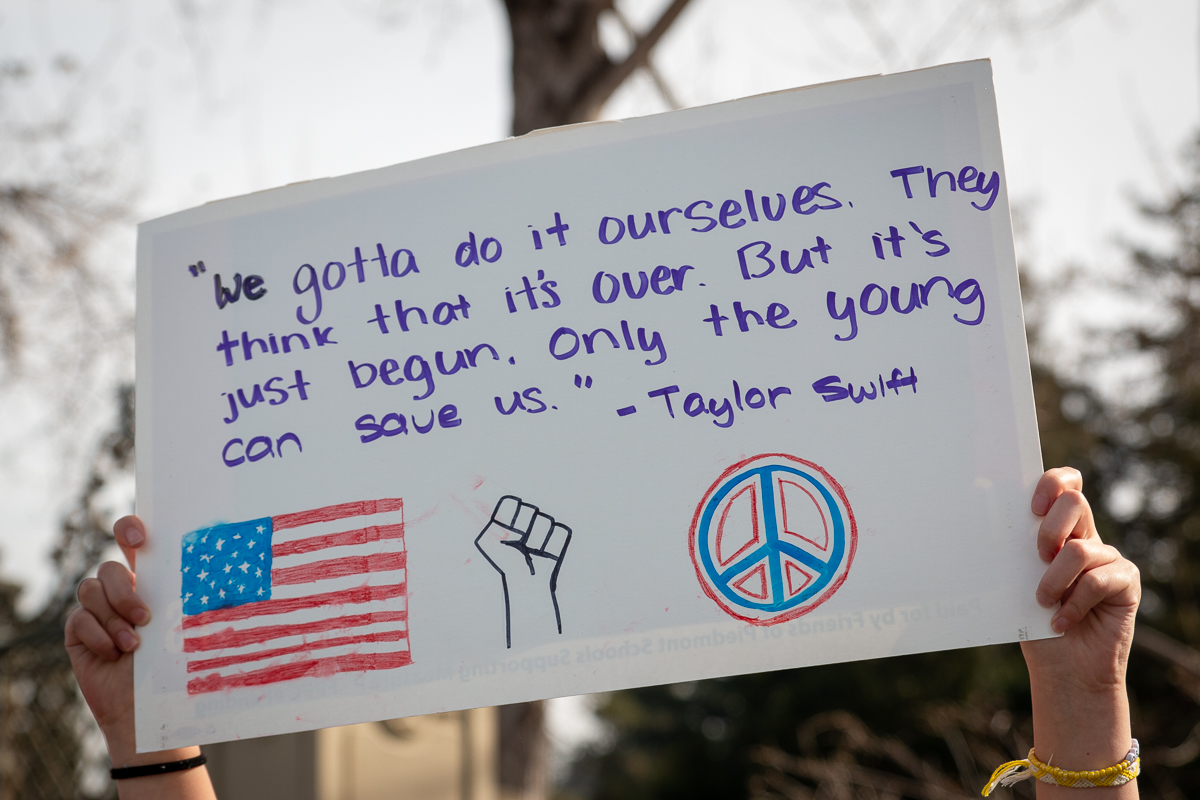 "We gotta do it ourselves. They
think that it's over. But it's
just begun. Only the young
can save us." - Taylor Swift
Paid for by Friends of Piedmont Schools Supporting